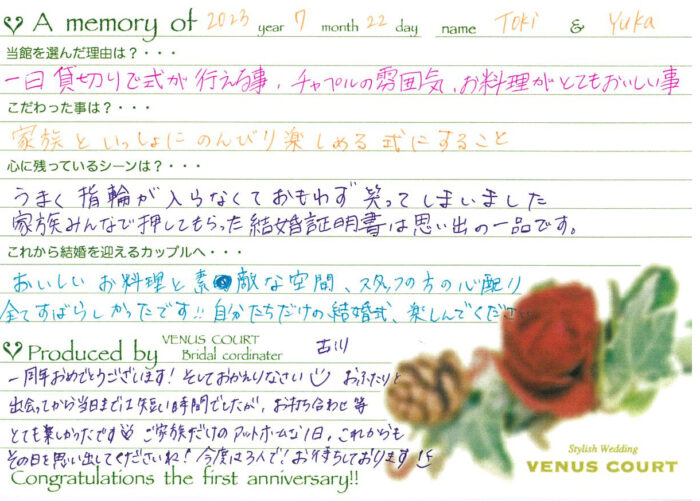 A memory of 2023 year 7 month 22 day name Toki & Yuka
当館を選んだ理由は？・・・
一日貸切りで式が行える事、チャペルの雰囲気、お料理がとてもおいしい事
こだわった事は？・・・
家族といっしょにのんびり楽しめる式にすること
心に残っているシーンは？・・・
うまく指輪が入らなくておもわず笑ってしまいました
家族みんなで押してもらった結婚証明書は思い出の一品です。
これから結婚を迎えるカップルへ・・・
おいしいお料理と素敵な空間、スタッフの方の心配り
全てすばらしかったです!!自分たちだけの結婚式、楽しんでください
Produced by VENUS COURT Bridal cordinater 古川
一周年おめでとうございます！そしておかえりなさい おふたりと
出会ってから当日までは短い時間でしたが、お打ち合わせ等
とても楽しかったです ご家族だけのアットホームな1日、これからも
その日を思い出してくださいね！今度は3人で！お待ちしております！
Congratulations the first anniversary!!
Stylish Wedding
VENUS COURT